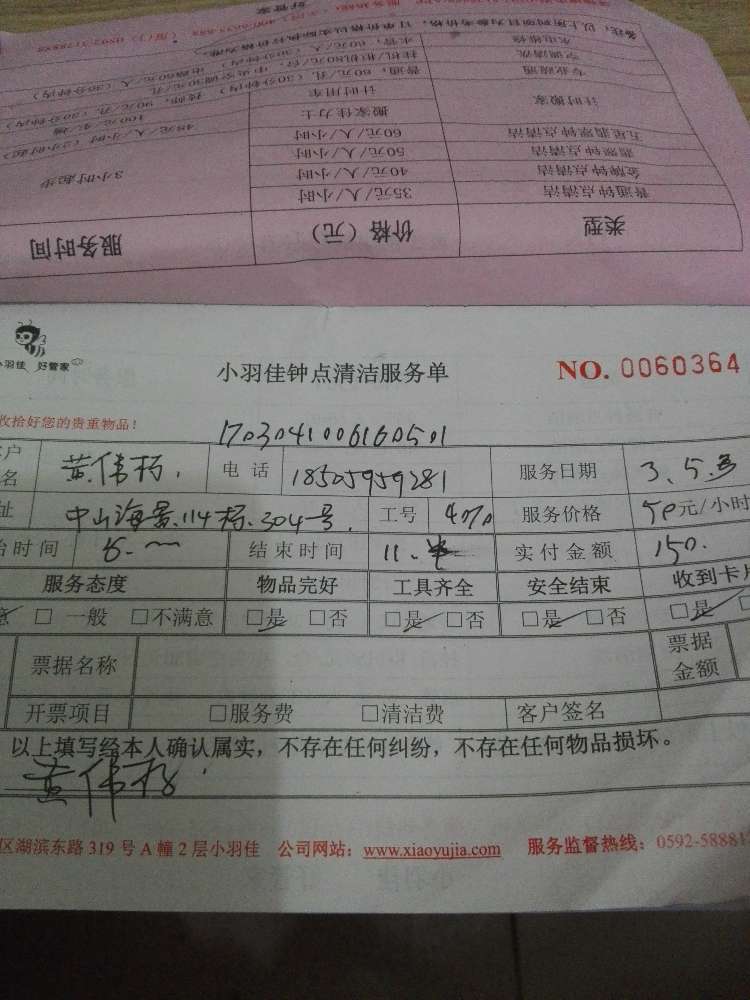 备注：以上所列项目为参考价格，订单价格以实际执行价格为准。
类型 价格（元） 服务时间
普通钟点清洁 35元/人/小时 3小时起步
金牌钟点清洁 40元/人/小时
翡翠钟点清洁 50元/人/小时
五星翡翠钟点清洁 60元/人/小时
计时搬家 搬家佳力士 45元/人/小时（2小时起）
计时用车
专业疏通
空调清洗
水电维修
好管家
小羽佳 好管家
小羽佳钟点清洁服务单 NO. 0060364
收拾好您的贵重物品！
1703041006160501
户名 黄伟杨 电话 18505959281 服务日期 3.5号
址 中山海景.114栋.304号. 工号 服务价格 50元/小时
始时间 结束时间 11. 实付金额 150.
服务态度 物品完好 工具齐全 安全结束 收到卡片
意 □一般 □不满意 □是 □否 □是 □否 □是 □否 □是
票据名称 票据金额
开票项目 □服务费 □清洁费 客户签名
以上填写经本人确认属实，不存在任何纠纷，不存在任何物品损坏。
黄伟杨
区湖滨东路319号A幢2层小羽佳 公司网站：www.xiaoyujia.com 服务监督热线：0592-58881